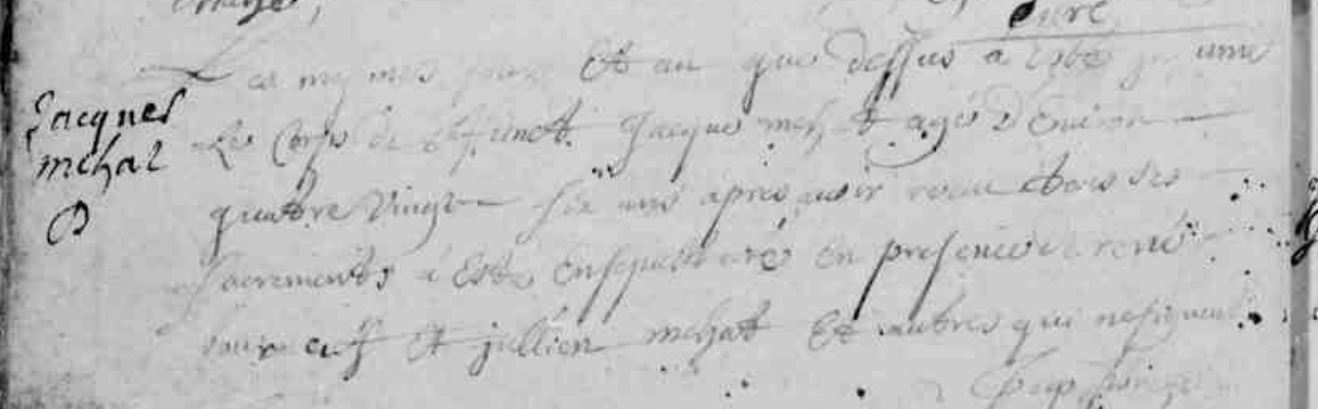 curé
Le mesmes jour Et an que dessus a esté inhumé
Jacques
mehat
Le Corps de deffunct Jacques mehat agé d'Environ
quatre vingt six ans apres avoir receu tous ses
sacrements a Esté Ensepulturé En presence de rené
et jullien mehat Et autres qui ne signent